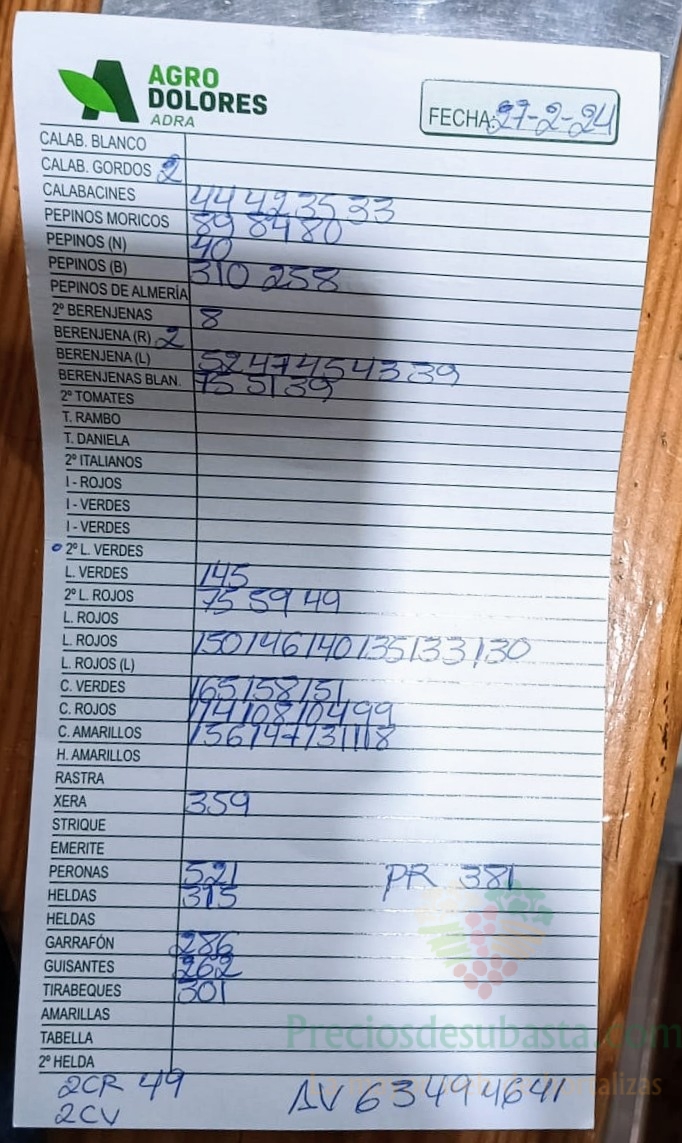 AGRO
DOLORES
ADRA
FECHA: 27-2-24
CALAB. BLANCO
CALAB. GORDOS 2
CALABACINES 44 42 35 33
PEPINOS MORICOS 89 84 80
PEPINOS (N) 40
PEPINOS (B) 310 258
PEPINOS DE ALMERÍA
2º BERENJENAS 8
BERENJENA (R) 2
BERENJENA (L) 52 47 45 43 39
BERENJENAS BLAN. 75 51 39
2º TOMATES
T. RAMBO
T. DANIELA
2º ITALIANOS
I - ROJOS
I - VERDES
I - VERDES
2º L. VERDES
L. VERDES 145
2º L. ROJOS 75 59 49
L. ROJOS
L. ROJOS 150 146 140 135 133 130
L. ROJOS (L)
C. VERDES 165 158 151
C. ROJOS 114 108 104 99
C. AMARILLOS 156 147 131 118
H. AMARILLOS
RASTRA
XERA 359
STRIQUE
EMERITE
PERONAS 521 PR 381
HELDAS 315
HELDAS
GARRAFÓN 286
GUISANTES 262
TIRABEQUES 301
AMARILLAS
TABELLA
2º HELDA
2CR 49 AV 63 49 46 41
2CV
Preciosdesubasta.com